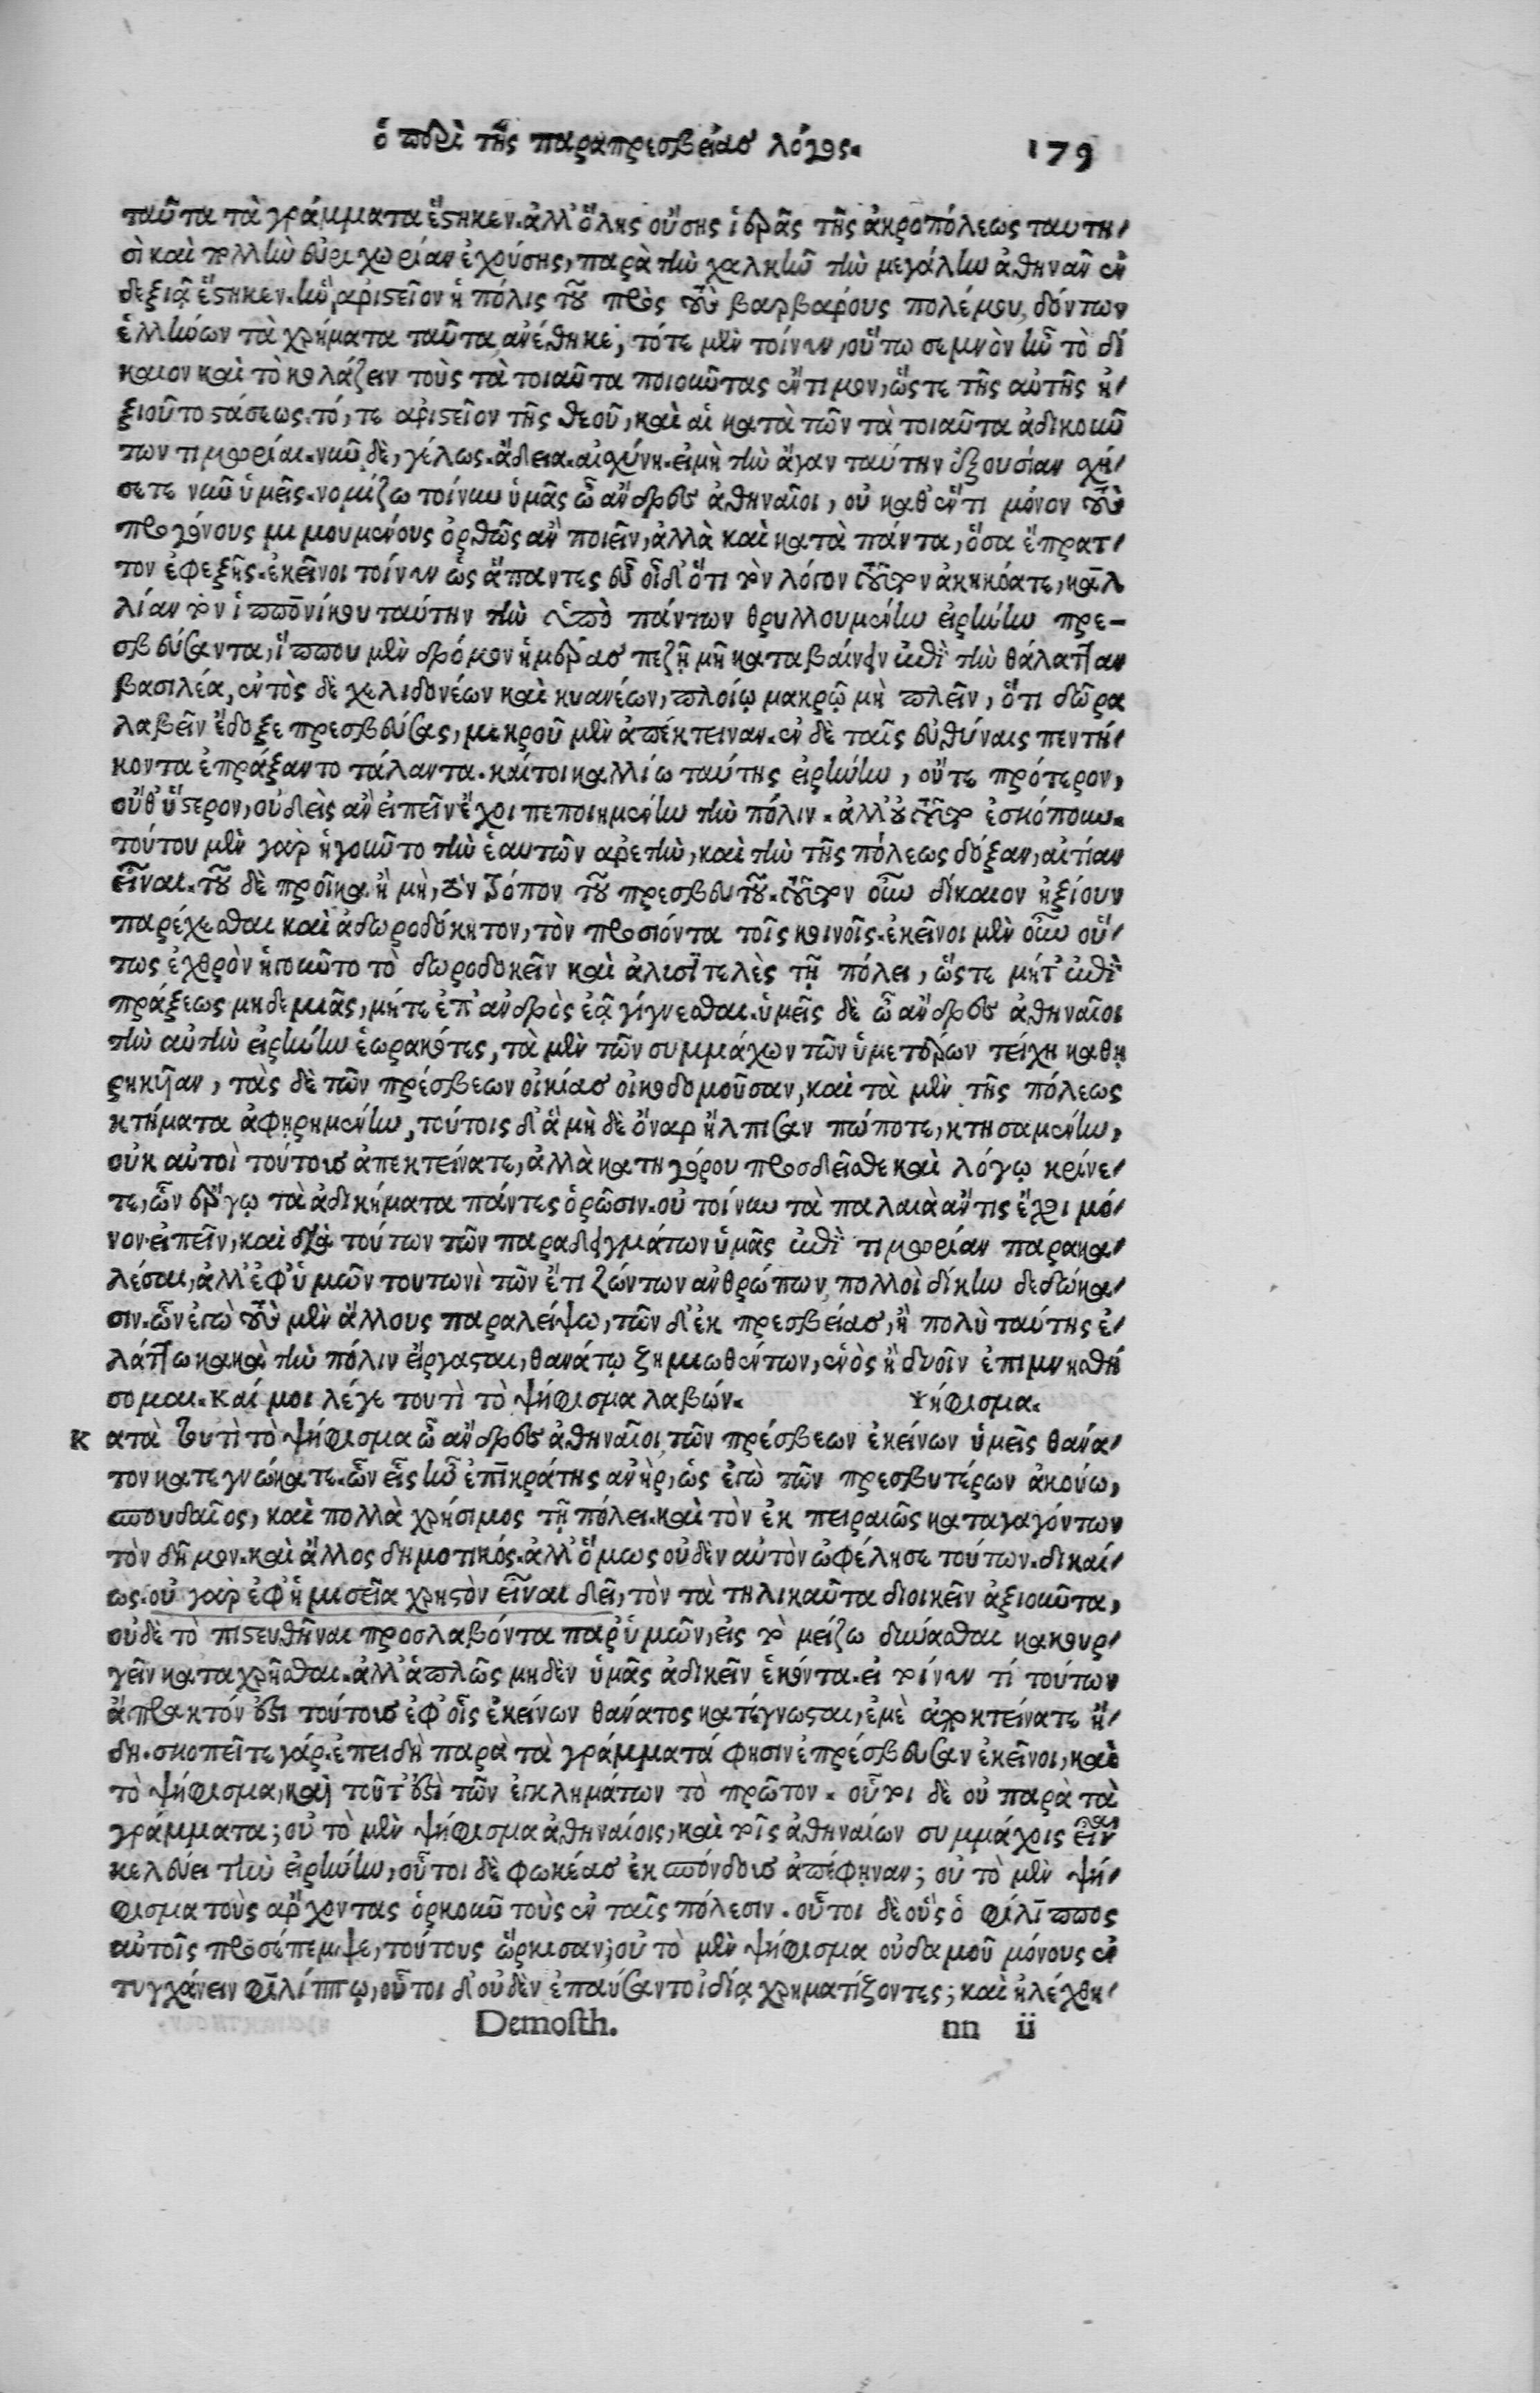 ὁ περὶ τῆς παραπρεσβείας λόγος. 179
ταῦτα τὰ γράμματα ἕστηκεν. ἀλλ' ὅλης οὔσης ἱερᾶς τῆς ἀκροπόλεως ταυτη-
σὶ καὶ πολλὴν εὐρυχωρίαν ἐχούσης, παρὰ τὴν χαλκῆν τὴν μεγάλην ἀθηνᾶν ἐν
δεξιᾷ ἕστηκεν. ἣν ἀριστεῖον ἡ πόλις τοῦ πρὸς τοὺς βαρβάρους πολέμου, δόντων
ἑλλήνων τὰ χρήματα ταῦτα, ἀνέθηκε; τότε μὲν τοίνυν, οὕτω σεμνὸν ἦν τὸ δί
καιον καὶ τὸ κολάζειν τοὺς τὰ τοιαῦτα ποιοῦντας ἔντιμον, ὥστε τῆς αὐτῆς ἠ-
ξιοῦτο στάσεως. τό, τε ἀριστεῖον τῆς θεοῦ, καὶ αἱ κατὰ τῶν τὰ τοιαῦτα ἀδικούν
των τιμωρίαι. νῦν δὲ, γέλως. ἄδεια. αἰσχύνη. εἰ μὴ τὴν ἄγαν ταύτην ἐξουσίαν σχή-
σετε νῦν ὑμεῖς. νομίζω τοίνυν ὑμᾶς ὦ ἄνδρες ἀθηναῖοι, οὐ καθ' ἕν τι μόνον τοὺς
προγόνους μιμουμένους ὀρθῶς ἂν ποιεῖν, ἀλλὰ καὶ κατὰ πάντα, ὅσα ἔπρατ-
τον ἐφεξῆς. ἐκεῖνοι τοίνυν ὡς ἅπαντες εὖ οἶδ' ὅτι τὸν λόγον τοῦτον ἀκηκόατε, καλ
λίαν τὸν ἱππονίκου ταύτην τὴν ὑπὸ πάντων θρυλλουμένην εἰρήνην πρε-
σβεύσαντα, ἵππου μὲν δρόμον ἡμέρας πεζῇ μὴ καταβαίνειν ἐπὶ τὴν θάλατταν
βασιλέα, ἐντὸς δὲ χελιδονέων καὶ κυανέων, πλοίῳ μακρῷ μὴ πλεῖν, ὅτι δῶρα
λαβεῖν ἔδοξε πρεσβεύσας, μικροῦ μὲν ἀπέκτειναν. ἐν δὲ ταῖς εὐθύναις πεντή-
κοντα ἐπράξαντο τάλαντα. καίτοι καλλίω ταύτης εἰρήνην, οὔτε πρότερον,
οὔθ' ὕστερον, οὐδεὶς ἂν εἰπεῖν ἔχοι πεποιημένην τὴν πόλιν. ἀλλ' οὐ τοῦτο ἐσκόπουν.
τούτου μὲν γὰρ ἡγοῦντο τὴν ἑαυτῶν ἀρετὴν, καὶ τὴν τῆς πόλεως δόξαν, αἰτίαν
εἶναι. τοῦ δὲ προῖκα ἢ μὴ, τὸν τρόπον τοῦ πρεσβευτοῦ. τοῦτον οὖν δίκαιον ἠξίουν
παρέχεσθαι καὶ ἀδωροδόκητον, τὸν προσιόντα τοῖς κοινοῖς. ἐκεῖνοι μὲν οὖν οὕ-
τως ἐχθρὸν ἡγοῦντο τὸ δωροδοκεῖν καὶ ἀλυσιτελὲς τῇ πόλει, ὥστε μήτ' ἐπὶ
πράξεως μηδεμιᾶς, μήτε ἐπ' ἀνδρὸς ἐᾷ γίγνεσθαι. ὑμεῖς δὲ ὦ ἄνδρες ἀθηναῖοι
τὴν αὐτὴν εἰρήνην ἑωρακότες, τὰ μὲν τῶν συμμάχων τῶν ὑμετέρων τείχη καθῃ
ρηκυῖαν, τὰς δὲ τῶν πρέσβεων οἰκίας οἰκοδομοῦσαν, καὶ τὰ μὲν τῆς πόλεως
κτήματα ἀφῃρημένην, τούτοις δ' ἃ μὴ δὲ ὄναρ ἤλπισαν πώποτε, κτησαμένην,
οὐκ αὐτοὶ τούτους ἀπεκτείνατε, ἀλλὰ κατηγόρου προσδεῖσθε καὶ λόγῳ κρίνε-
τε, ὧν ἔργῳ τὰ ἀδικήματα πάντες ὁρῶσιν. οὐ τοίνυν τὰ παλαιὰ ἄν τις ἔχοι μό-
νον εἰπεῖν, καὶ διὰ τούτων τῶν παραδειγμάτων ὑμᾶς ἐπὶ τιμωρίαν παρακα-
λέσαι, ἀλλ' ἐφ' ὑμῶν τουτωνὶ τῶν ἔτι ζώντων ἀνθρώπων, πολλοὶ δίκην δεδώκα-
σιν. ὧν ἐγὼ τοὺς μὲν ἄλλους παραλείψω, τῶν δ' ἐκ πρεσβείας, ἣ πολὺ ταύτης ἐ-
λάττω κακὰ τὴν πόλιν εἴργασται, θανάτῳ ζημιωθέντων, ἑνὸς ἢ δυοῖν ἐπιμνησθή
σομαι. καί μοι λέγε τουτὶ τὸ ψήφισμα λαβών. Ψήφισμα.
κ ατὰ τουτὶ τὸ ψήφισμα ὦ ἄνδρες ἀθηναῖοι, τῶν πρέσβεων ἐκείνων ὑμεῖς θάνα-
τον κατεγνώκατε. ὧν εἷς ἦν ἐπικράτης ἀνὴρ, ὡς ἐγὼ τῶν πρεσβυτέρων ἀκούω,
σπουδαῖος, καὶ πολλὰ χρήσιμος τῇ πόλει. καὶ τὸν ἐκ πειραιῶς καταγαγόντων
τὸν δῆμον. καὶ ἄλλος δημοτικός. ἀλλ' ὅμως οὐδὲν αὐτὸν ὠφέλησε τούτων. δικαί-
ως. οὐ γὰρ ἐφ' ἡμισεῖα χρηστὸν εἶναι δεῖ, τὸν τὰ τηλικαῦτα διοικεῖν ἀξιοῦντα,
οὐδὲ τὸ πιστευθῆναι προσλαβόντα παρ' ὑμῶν, εἰς τὸ μείζω δύνασθαι κακουρ-
γεῖν καταχρῆσθαι. ἀλλ' ἁπλῶς μηδὲν ὑμᾶς ἀδικεῖν ἑκόντα. εἰ τοίνυν τί τούτων
ἄπρακτόν ἐστι τούτοις ἐφ' οἷς ἐκείνων θάνατος κατέγνωσται, ἐμὲ ἀποκτείνατε ἤ-
δη. σκοπεῖτε γάρ. ἐπειδὴ παρὰ τὰ γράμματά φησιν ἐπρέσβευσαν ἐκεῖνοι, καὶ
τὸ ψήφισμα, καὶ τοῦτ' ἐστὶ τῶν ἐγκλημάτων τὸ πρῶτον. οὗτοι δὲ οὐ παρὰ τὰ
γράμματα; οὐ τὸ μὲν ψήφισμα ἀθηναίοις, καὶ τοῖς ἀθηναίων συμμάχοις εἶναι
κελεύει τὴν εἰρήνην, οὗτοι δὲ φωκέας ἐκσπόνδους ἀπέφηναν; οὐ τὸ μὲν ψή-
φισμα τοὺς ἄρχοντας ὁρκοῦν τοὺς ἐν ταῖς πόλεσιν. οὗτοι δὲ οὓς ὁ φίλιππος
αὐτοῖς προσέπεμψε, τούτους ὥρκισαν; οὐ τὸ μὲν ψήφισμα οὐδαμοῦ μόνους ἐν
τυγχάνειν φιλίππῳ, οὗτοι δ' οὐδὲν ἐπαύσαντο ἰδίᾳ χρηματίζοντες; καὶ ἠλέγχθη-
Demosth. nn ii